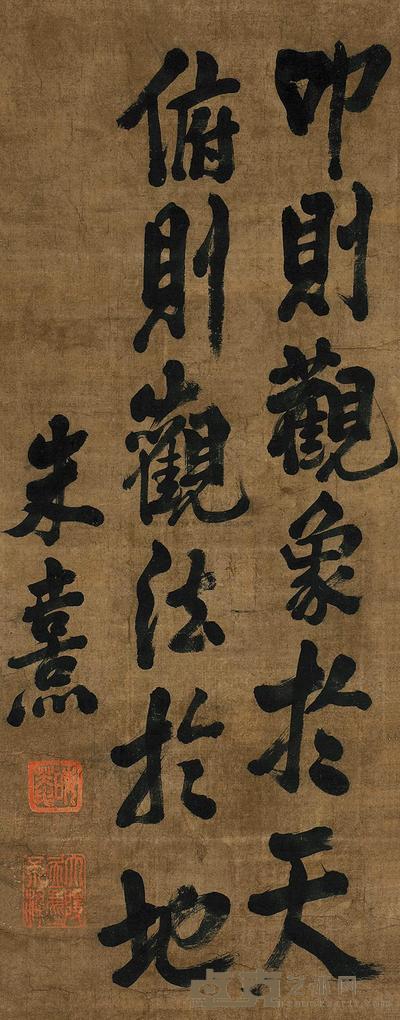 卬則觀象於天
俯則觀法於地
朱熹